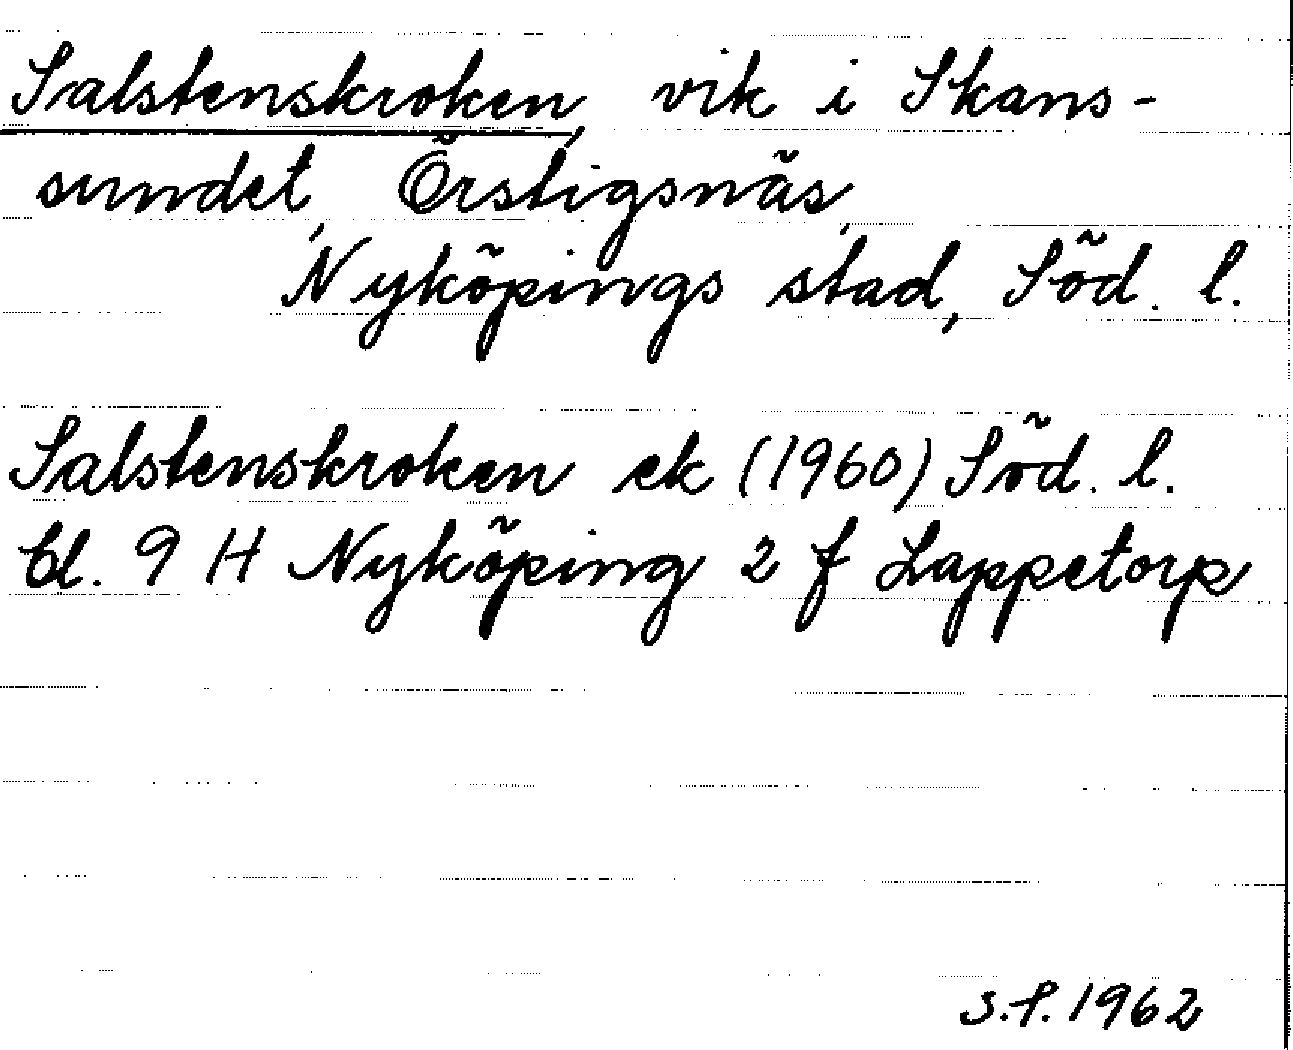 Salstenskroken, vik i Skans-
sundet, Örstigsnäs,
Nyköpings stad, Söd. l.
Salstenskroken ek (1960) Söd. l.
bl. 9 H Nyköping 2 f Lappetorp
S.P. 1962